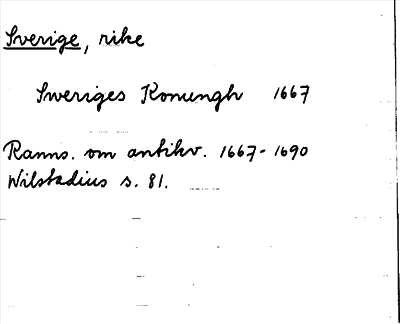 Sverige, rike
Sweriges Konungh 1667
Ranns. om antikv. 1667-1690
Wilstadius s. 81.